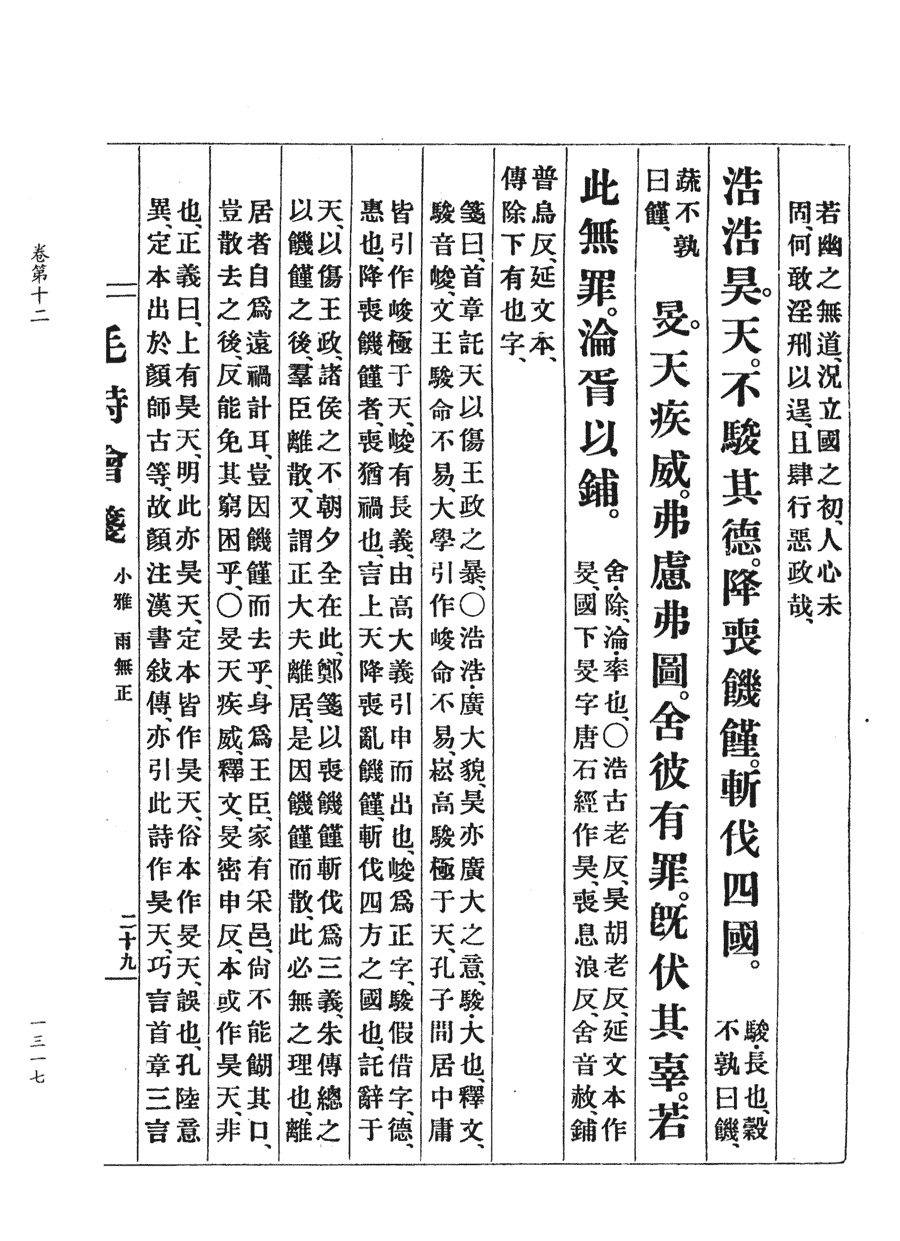 若幽之無道、況立國之初、人心未
固、何敢淫刑以逞、且肆行惡政哉、
浩浩昊天。不駿其德。降喪饑饉。斬伐四國。
駿・長也、穀
不孰曰饑、
蔬不孰
曰饉、
旻天疾威。弗慮弗圖。舍彼有罪。旣伏其辜。若
此無罪。淪胥以鋪。
舍・除、淪・率也、〇浩古老反、昊胡老反、延文本作
旻、國下旻字唐石經作昊、喪息浪反、舍音赦、鋪
普烏反、延文本、
傳除下有也字、
箋曰、首章託天以傷王政之暴、〇浩浩・廣大貌、昊亦廣大之意、駿・大也、釋文、
駿音峻、文王駿命不易、大學引作峻命不易、崧高駿極于天、孔子閒居中庸
皆引作峻極于天、峻有長義、由高大義引申而出也、峻爲正字、駿假借字、德、
惠也、降喪饑饉者、喪猶禍也、言上天降喪亂饑饉、斬伐四方之國也、託辭于
天、以傷王政、諸侯之不朝夕全在此、鄭箋以喪饑饉斬伐爲三義、朱傳總之
以饑饉之後、羣臣離散、又謂正大夫離居、是因饑饉而散、此必無之理也、離
居者自爲遠禍計耳、豈因饑饉而去乎、身爲王臣、家有采邑、尙不能餬其口、
豈散去之後、反能免其窮困乎、〇旻天疾威、釋文、旻密申反、本或作昊天、非
也、正義曰、上有昊天、明此亦昊天、定本皆作昊天、俗本作旻天、誤也、孔陸意
異、定本出於顏師古等、故顏注漢書敍傳、亦引此詩作昊天、巧言首章三言
毛詩會箋 小雅 雨無正 二十九
卷第十二
一三一七